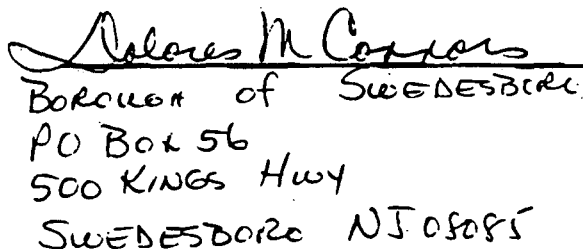 Dolores M Connors
BOROUGH of SWEDESBORO
PO BOX 56
500 KINGS HWY
SWEDESBORO NJ 08085